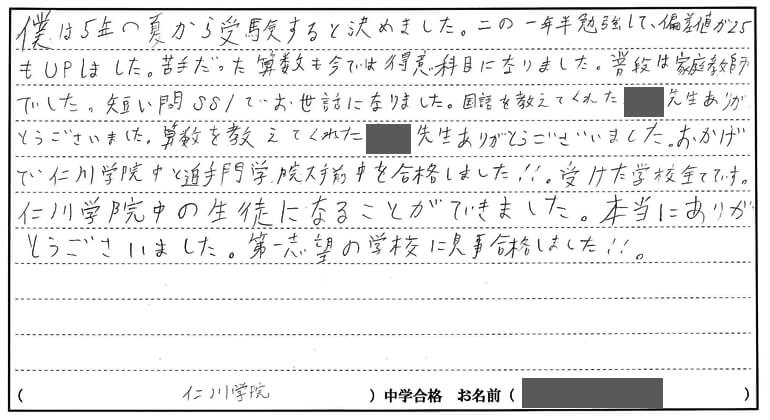 僕は5年の夏から受験すると決めました。この一年半勉強して、偏差値が25
もUPしました。苦手だった算数も今では得意科目になりました。普段は家庭教師
でした。短い間SS1でお世話になりました。国語を教えてくれた 先生ありが
とうございました。算数を教えてくれた 先生ありがとうございました。おかげ
で仁川学院中と追手門学院大手前中を合格しました!!。受けた学校全てです。
仁川学院中の生徒になることができました。本当にありが
とうございました。第一志望の学校に見事合格しました!!。
(仁川学院)中学合格 お名前( )